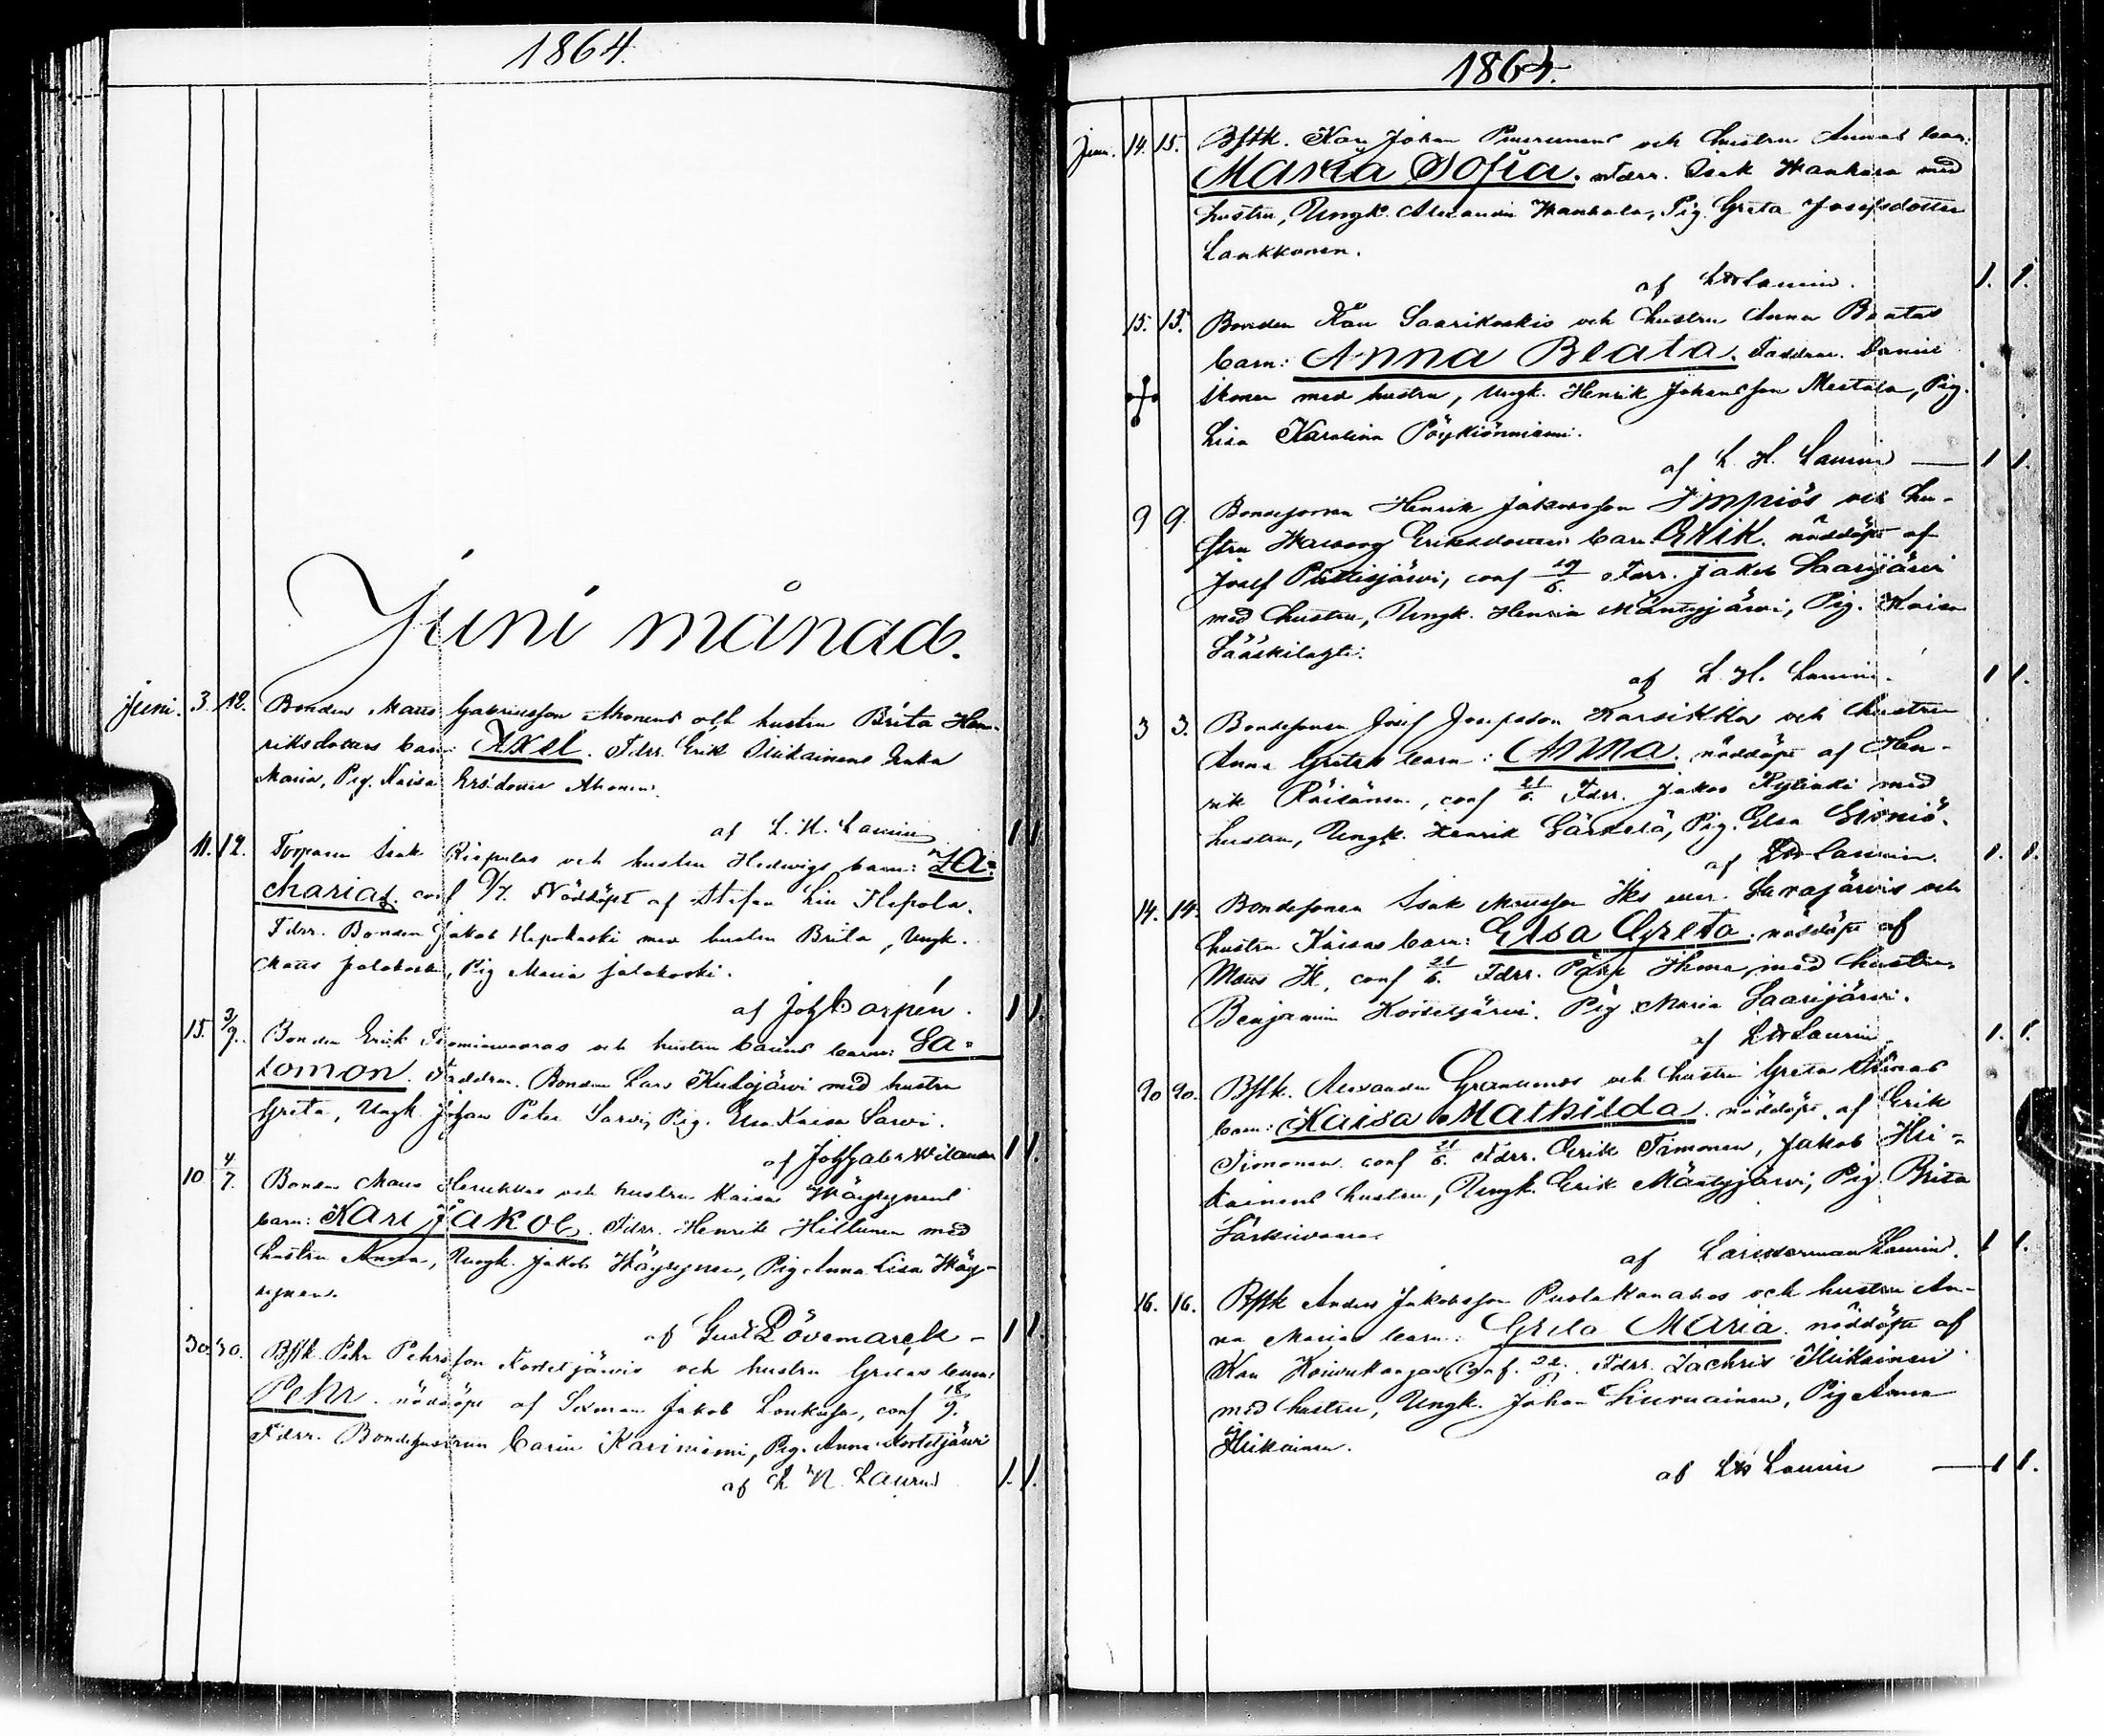 1864.
Juni månad.
Juni. 3. 12. Bonden Matts Gabrielsson Ahonens och hustru Brita Hen-
riksdotters barn: Axel. Fdrr. Erik Oikainens Enka
Maria, Pig. Kaisa Ersdotter Ahonen.
af L. H. Laurin 1 1
11. 12. Torparen Isak Rispulas och hustru Hedwigs barn: Za=
charias. conf 9/7. Nöddöpt af Stefan Hepola.
Fdrr. Bonden Jakob Hepokoski med hustru Brita, Ungk.
Matts Jalokoski, Pig Maria Jalokoski.
af Joh Carpén. 1 1.
15. 3/9. Bonden Erik och hustru Carins barn: Sa=
lomon. Faddrar. Bonden Lars Kulojärwi med hustru
Greta, Ungk. Johan Peter Sarwi, Pig. Elsa Kaisa Sarwi.
af Joh Gabr Wilander 1 1.
10 4/7. Bonden Matts och hustru Kaisa Wäyrynens
barn: Karl Jakob. Fdrr. Henrik Hiltunen med
hustru Anna, Ungk. Jakob Wäyrynen, Pig Anna Lisa Wäy-
rynen.
af Gust Dövemarck - 1 1.
30. 30. Bfsk Pehr Pehrsson Kortetjärwis och hustru Gretas barn:
Pehr. nöddöpt af Sexman Jakob Loukusa, conf 18/9.
Fdrr. Bondehustrun Carin Kariniemi, Pig. Anna Kortetjärwi
af L H. Laurin 1. 1.
1864.
Juni. 14. 15. Bfsk. Karl Johan och hustru Annas barn:
Maria Sofia. Fdrr. Isak Wankara med
hustru, Ungk. Alexander, Pig. Greta Josefsdotter
Laukkanen.
af LH Laurin. 1. 1.
15. 15. Bonden Saarikoskis och hustru Anna Beatas
barn: Anna Beata. Faddrar. Daniel
Ikonen med hustru, Ungk. Henrik Johansson Mestala, Pig.
Lisa Karolina Pöykiönniemi.
af L. H. Laurin — 1 1.
9 9. Bondesonen Henrik Jakobsson Impiös och hu-
stru Walborg Eriksdotters barn: Erik. nöddöpt af
Josef Pättijärwi, conf 19/6. Fdrr. Jakob Saarijärwi
med hustru, Ungk. Henrik Mäntyjärwi, Pig. Kaisa
Sääskilahti.
af L. H. Laurin. 1 1.
3 3. Bondesonen Josef Josefsson Karsikkas och hustru
Anna Gretas barn: Anna. nöddöpt af Hen-
rik Räisänen, conf 21/6. Fdrr. Jakob Kylinki med
hustru, Ungk. Henrik Särkelä, Pig. Elsa Sirniö.
af LH Laurin. 1. 1.
14. 14. Bondesonen Isak Mattsson Iks eller Sarajärwis och
hustru Kaisas barn: Elsa Greta. nöddöpt af
Matts Ik, conf 21/6. Fdrr. Ikonen, med hustru,
Benjamin Koitijärwi. Pig Maria Saarijärwi.
af LH Laurin. 1. 1.
20 20. Bfsk. Alexander Granlunds och hustru Greta Stinas
barn: Kaisa Mathilda. nöddöpt. af Erik
Timonen. conf 21/6. Fdrr. Erik Timonen, Jakob Hei=
kainens hustru, Ungk. Erik Mäntyjärwi, Pig. Brita
Särkiwaara.
af Lars Herman Laurin. 1 1.
16. 16. Bfsk Anders Jakobsson Puolakanahos och hustru An-
na Marias barn: Greta Maria. nöddöpt af
Karl Koiwukangas Conf. Fdrr. Zachris Heikkinen
med hustru, Ungk. Johan Kiuruainen, Pig Anna
Heikkinen.
af LH Laurin — 1 1.